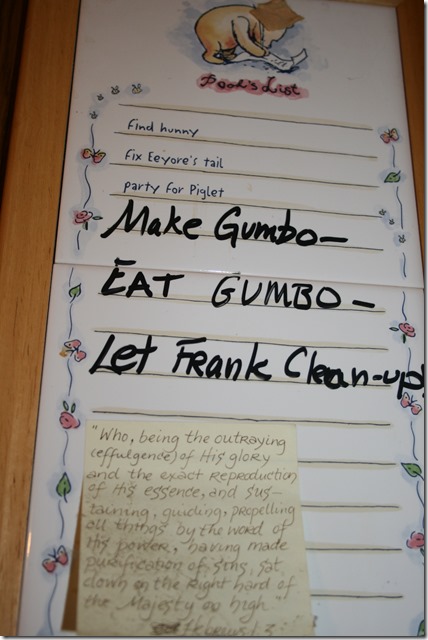 Pooh's List
find hunny
fix Eeyore's tail
party for Piglet
Make Gumbo—
EAT GUMBO—
Let Frank Clean-up!
"Who, being the outraying
(effulgence) of His glory
and the exact Reproduction
of His essence, and sus-
taining, guiding, propelling
all things by the word of
His power, having made
purification of sins, sat
down on the Right hand of
the Majesty on high"
Hebrews 1:3